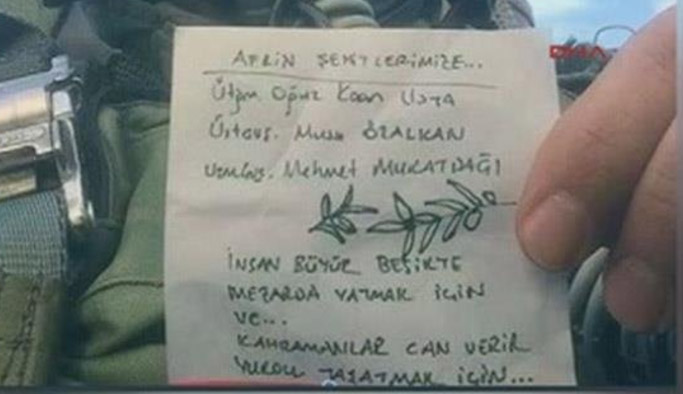 AFRİN ŞEHİTLERİMİZE...
DHA
Ütğm. Oğuz Kaan Usta
Üstçvş. Musa ÖZALKAN
Uzm.Çvş. Mehmet MURATDAĞI
İNSAN BÜYÜR BEŞİKTE
MEZARDA YATMAK İÇİN
VE...
KAHRAMANLAR CAN VERİR
YURDU YAŞATMAK İÇİN...